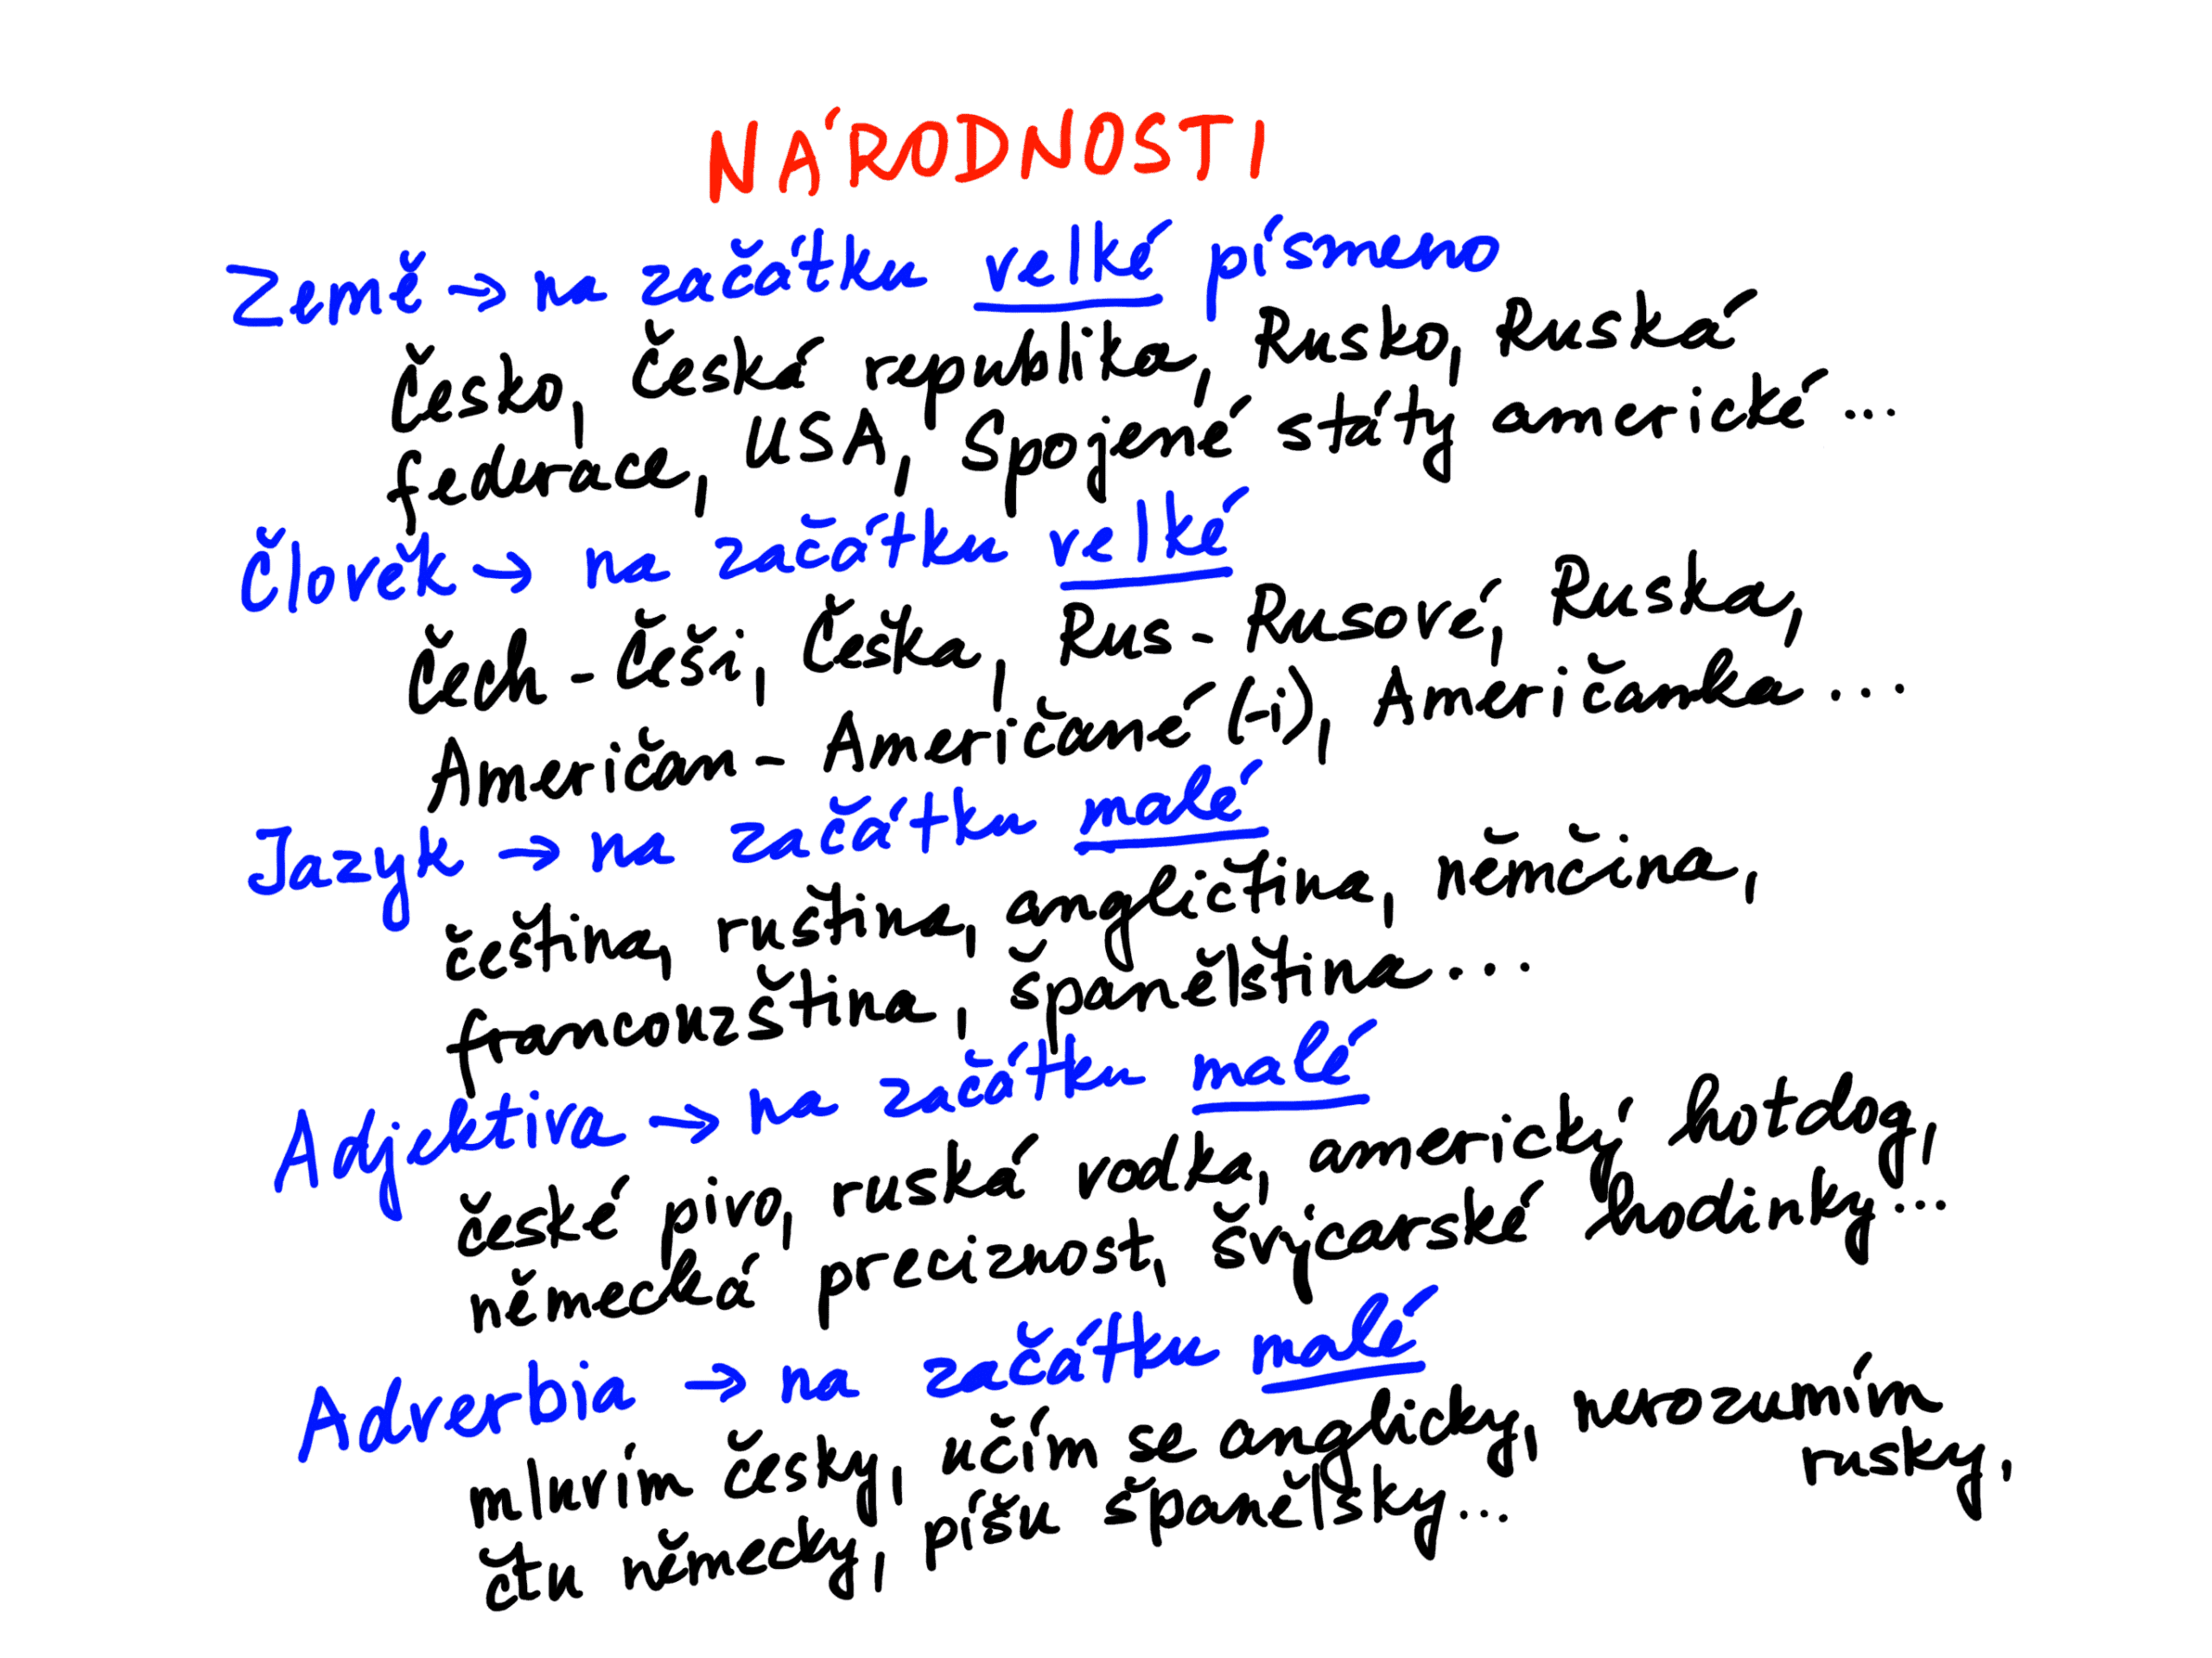 NÁRODNOSTI
Země → na začátku velké písmeno
Česko, Česká republika, Rusko, Ruská
federace, USA, Spojené státy americké...
Člověk → na začátku velké
Čech - Češi, Češka, Rus - Rusové, Ruska,
Američan - Američané (-i), Američanka...
Jazyk → na začátku malé
čeština, ruština, angličtina, němčina,
francouzština, španělština...
Adjektiva → na začátku malé
české pivo, ruská vodka, americký hotdog,
německá preciznost, švýcarské hodinky...
Adverbia → na začátku malé
mluvím česky, učím se anglicky, nerozumím
rusky,
čtu německy, píšu španělsky...